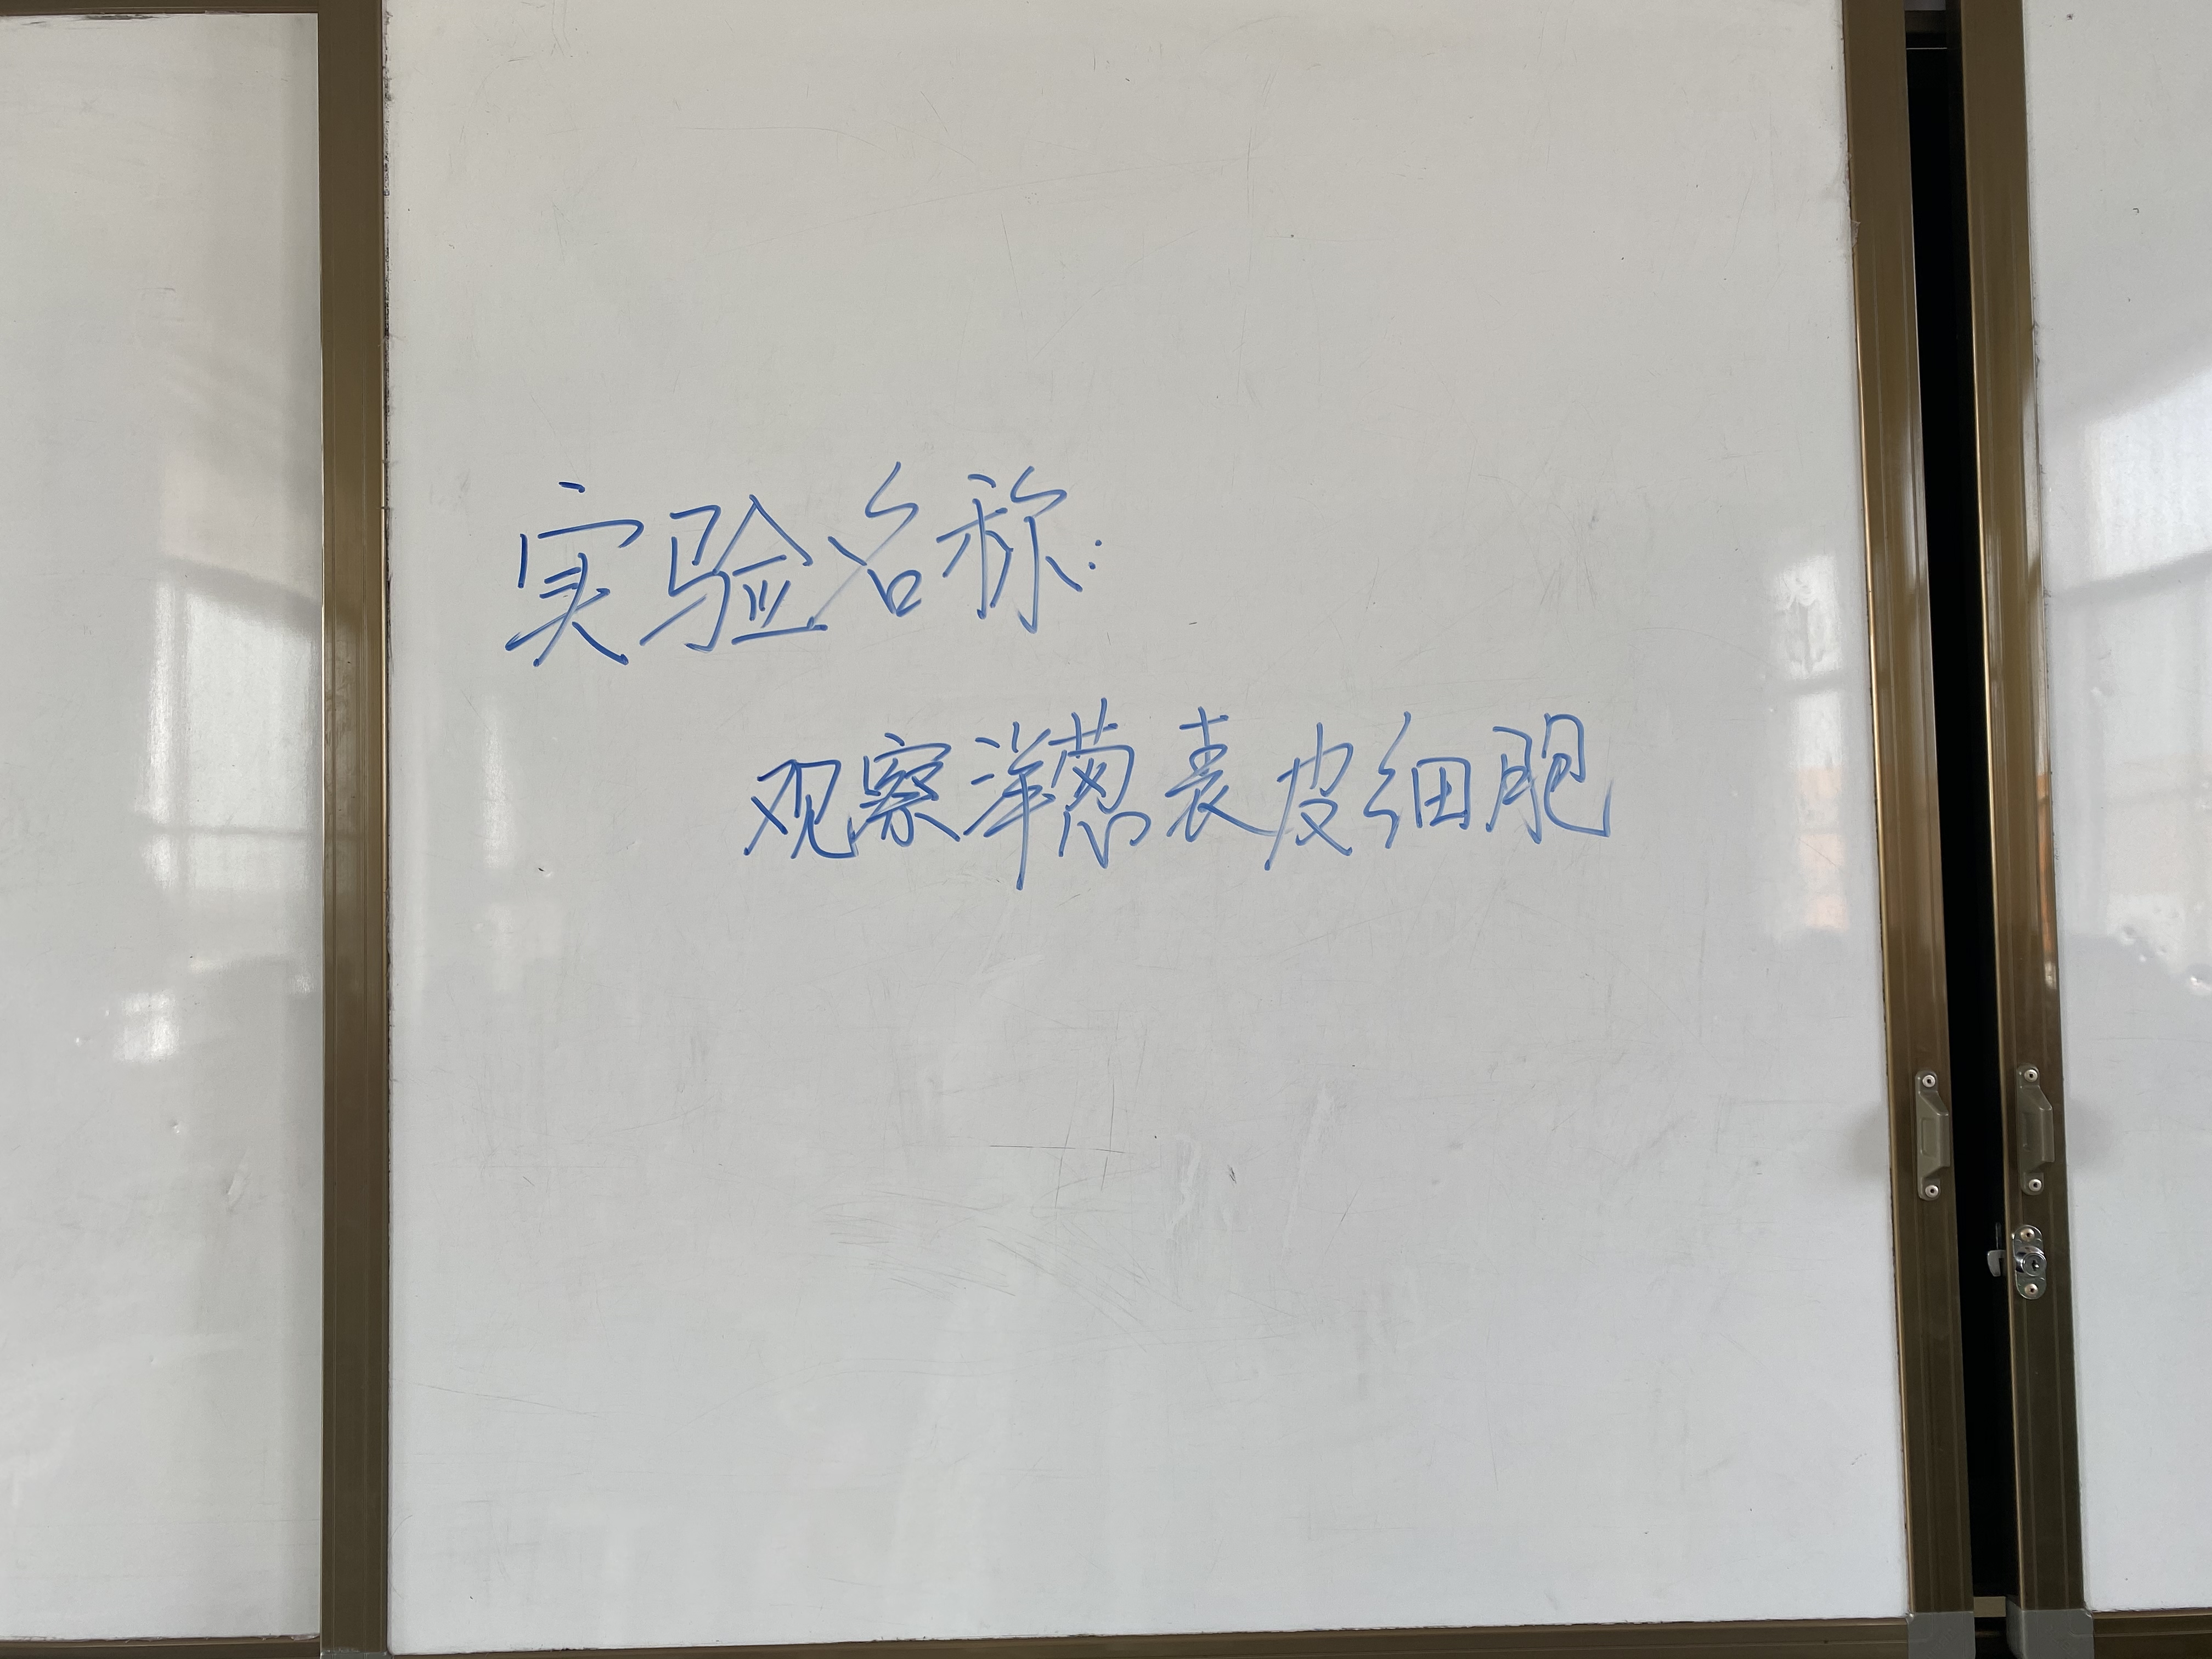 实验名称:
观察洋葱表皮细胞